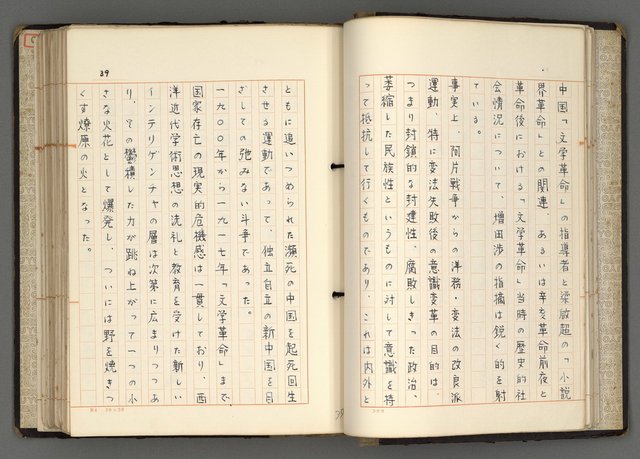 中国「文学革命」の指導者と梁啟超の「小説
界革命」との関連、あるいは辛亥革命前夜と
革命後における「文学革命」当時の歴史的社
会情況について、増田渉の指摘は鋭く的を射
ている。
事実上、阿片戦争からの洋務・変法の改良派
運動、特に変法失敗後の意識変革の目的は、
つまり封鎖的な封建性、腐敗しきった政治、
萎縮した民族性というものに対して意識を持
って抵抗して行くものであり、これは内外と
ともに追いつめられた瀕死の中国を起死回生
させる運動であって、独立自立の新中国を目
ざしての弛みない斗争であった。
一九〇〇年から一九一七年「文学革命」まで、
国家存亡の現実的危機感は一貫しており、西
洋近代学術思想の洗礼と教育を受けた新しい
インテリゲンチャの層は次第に広まりつつあ
り、その鬱積した力が跳ね上がって一つの小
さな火花として爆発し、ついには野を焼きつ
くす燎原の火となった。
39